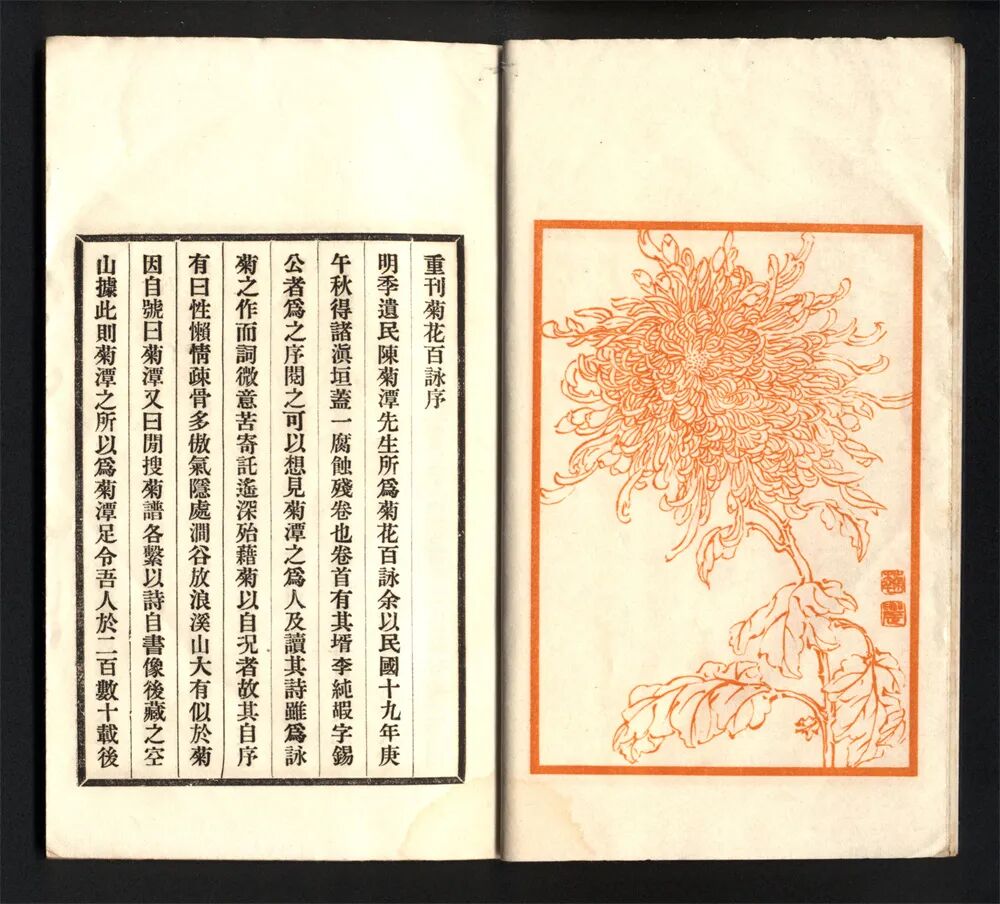 重刊菊花百詠序
明季遺民陳菊潭先生所爲菊花百詠余以民國十九年庚
午秋得諸滇垣蓋一腐蝕殘卷也卷首有其壻李純嘏字錫
公者爲之序閱之可以想見菊潭之爲人及讀其詩雖爲詠
菊之作而詞微意苦寄託遙深殆藉菊以自況者故其自序
有曰性懶情疎骨多傲氣隱處澗谷放浪溪山大有似於菊
因自號曰菊潭又曰閒搜菊譜各繫以詩自書像後藏之空
山據此則菊潭之所以爲菊潭足令吾人於二百數十載後